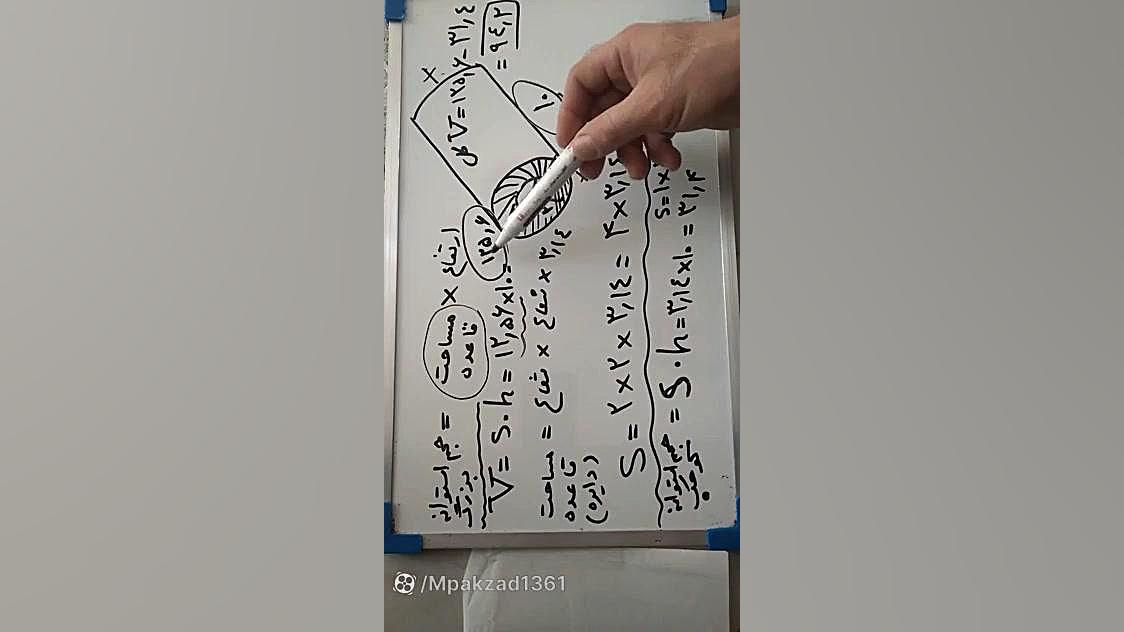 حجم استوانه بزرگ = مساحت قاعده × ارتفاع
V = S . h = ۱۲,۵۶ × ۱۰ = ۱۲۵,۶
مساحت قاعده (دایره) = شعاع × شعاع × ۳,۱۴
S = ۲ × ۲ × ۳,۱۴ = ۴ × ۳,۱۴
حجم استوانه کوچک = S . h = ۳,۱۴ × ۱۰ = ۳۱,۴
S = ۱ ×
V کل = ۱۲۵,۶ - ۳۱,۴
= ۹۴,۲
۱۰
/Mpakzad1361